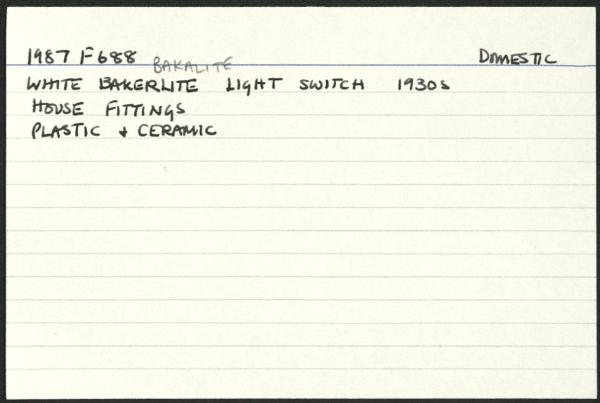 1987 F688 BAKALITE DOMESTIC
WHITE BAKERLITE LIGHT SWITCH 1930s
HOUSE FITTINGS
PLASTIC + CERAMIC